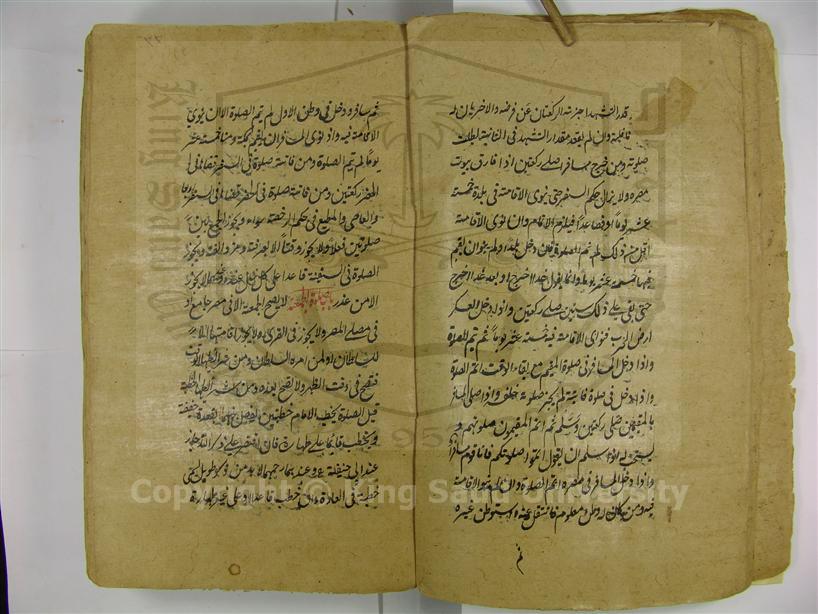 قدر التشهد اجزته الركعتان عن فرضه والاخريان له
نافلة وان لم يقعد مقدار التشهد فى الثانية بطلت
صلوته ومن خرج مسافرا صلى ركعتين اذا فارق بيوت
مصره ولا يزال حكم السفر حتى ينوى الاقامة فى بلدة خمسة
عشر يوما فصاعدا فيلزم الاتمام وان نوى الاقامة
اقل من ذلك لم يتم الصلوة ومن دخل بلدا ولم ينو ان يقيم
فيها خمسة عشر يوما وانما يقول غدا اخرج او بعد غد اخرج
حتى بقى على ذلك سنين صلى ركعتين واذا دخل العسكر
ارض الحرب فنوى الاقامة فيه خمسة عشر يوما لم يتم الصلوة
واذا دخل المسافر فى صلوة المقيم مع بقاء الوقت اتم الصلوة
واذا دخل فى صلوة فائتة لم يجز صلوته خلفه واذا صلى المسافر
بالمقيمين صلى ركعتين وسلم ثم اتم المقيمون صلوتهم و
يستحب له اذا سلم ان يقول اتموا صلوتكم فانا قوم سفر
واذا دخل المسافر فى مصره اتم الصلوة وان لم ينو الاقامة
فيه ومن كان له وطن معلومة فانتقل عنه واستوطن غيره
ثم
ثم سافر ودخل فى وطن الاول لم يتم الصلوة الا ان ينوى
الاقامة فيه واذا نوى المسافر ان يقيم بمكة ومنا خمسة عشر
يوما لم يتم الصلوة ومن فاتته صلوة فى السفر قضاها فى
الحضر ركعتين ومن فاتته صلوة فى الحضر قضاها فى السفر اربعا
والعاصى والمطيع فى حكم الرخصة سواء ويجوز الجمع بين
صلوتين فعلا ولا يجوز وقتا الا بعرفة ومزدلفة ويجوز
الصلوة فى السفينة قاعدا على كل حال عند لا يجوز
الا من عذر باب صلوة الجمعة لا يصح الجمعة الا فى مصر جامع او
فى مصلى المصر ولا يجوز فى القرى ولا يجوز اقامتها الا
للسلطان او لمن امره السلطان ومن شرائطها الوقت
فتصح فى وقت الظهر ولا تصح بعده ومن شرائطها الخطبة
قبل الصلوة يخطب الامام خطبتين يفصل بينهما بقعدة خفيفة
ويخطب قائما على طهارة فان اقتصر على ذكر الله جاز
عند ابى حنيفة وعندهما لا بد من ذكر طويل يسمى
خطبة فى العادة وان خطب قاعدا او على غير طهارة
Copyright © King Saud University